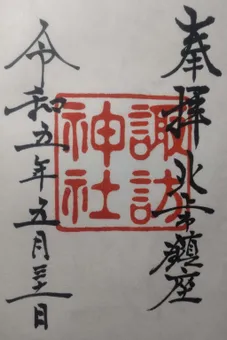 奉拝 鎮座
諏訪
神社
令和五年五月 日